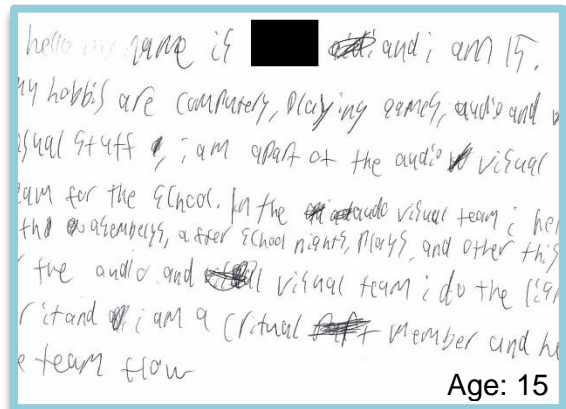 hello my name is and i am 15.
my hobbis are computers, Playing games, audio and v
isual stuff, i am apart of the audio visual
eam for the school. In the audo visual team i hel
the asembelys, after school nights, Plays, and other this
r the audio and visual team i do the ligh
r it and i am a critual member and he
e team flow
Age: 15